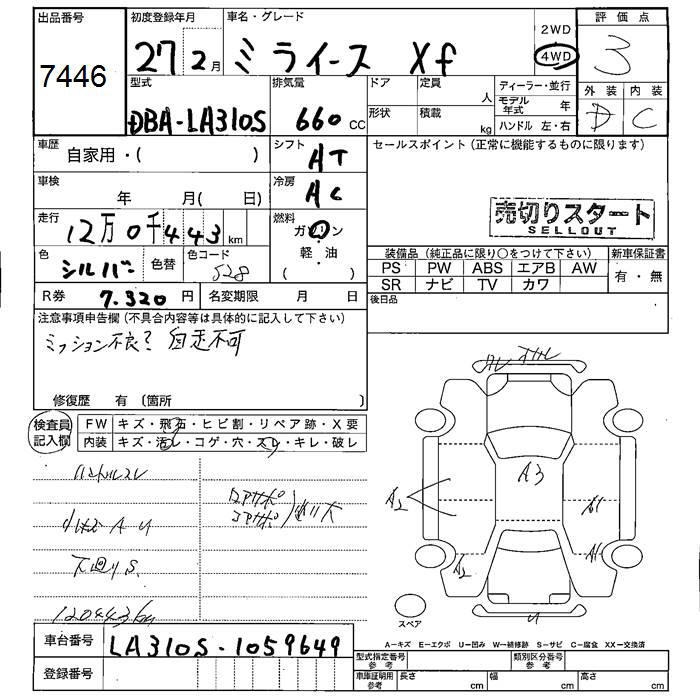 出品番号 初度登録年月 車名・グレード 2WD 評価点
7446 27 2月 ミライース Xf 4WD 3
型式 排気量 ドア 定員 人 ディーラー・並行 外装 内装
DBA-LA310S 660cc 形状 積載 kg モデル年式 年 D C
ハンドル 左・右
車歴 自家用・( ) シフト AT セールスポイント(正常に機能するものに限ります)
車検 年 月( 日) 冷房 AC
売切りスタート
SELLOUT
走行 12万0千443km 燃料 ガソリン
軽・油
色 シルバー 色替 色コード S28 装備品(純正品に限り○をつけて下さい) 新車保証書
PS PW ABS エアB AW 有・無
SR ナビ TV カワ
R券 7.320円 名変期限 月 日 後日品
注意事項申告欄(不具合内容等は具体的に記入して下さい)
ミッション不良? 自走不可
修復歴 有(箇所 )
検査員記入欄 FW キズ・飛石・ヒビ割・リペア跡・X要
内装 キズ・汚レ・コゲ・穴・スレ・キレ・破レ
ハンドルスレ
A3
小キズ A U
A2 A1
下回り S
A2 A1
120443km
U
スペア
A=キズ E=エクボ U=凹み W=補修跡 S=サビ C=腐食 XX=交換済
車台番号 LA310S-1059649
型式指定番号 参考 類別区分番号 参考
登録番号 車庫証明用 参考 長さ cm 幅 cm 高さ cm